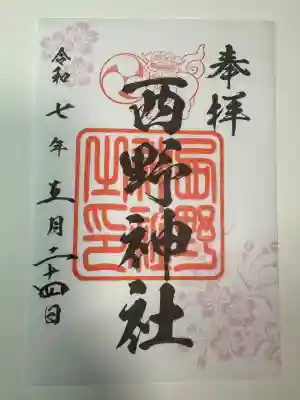 奉拝
西野神社
西野神社之印
令和七年五月二十四日